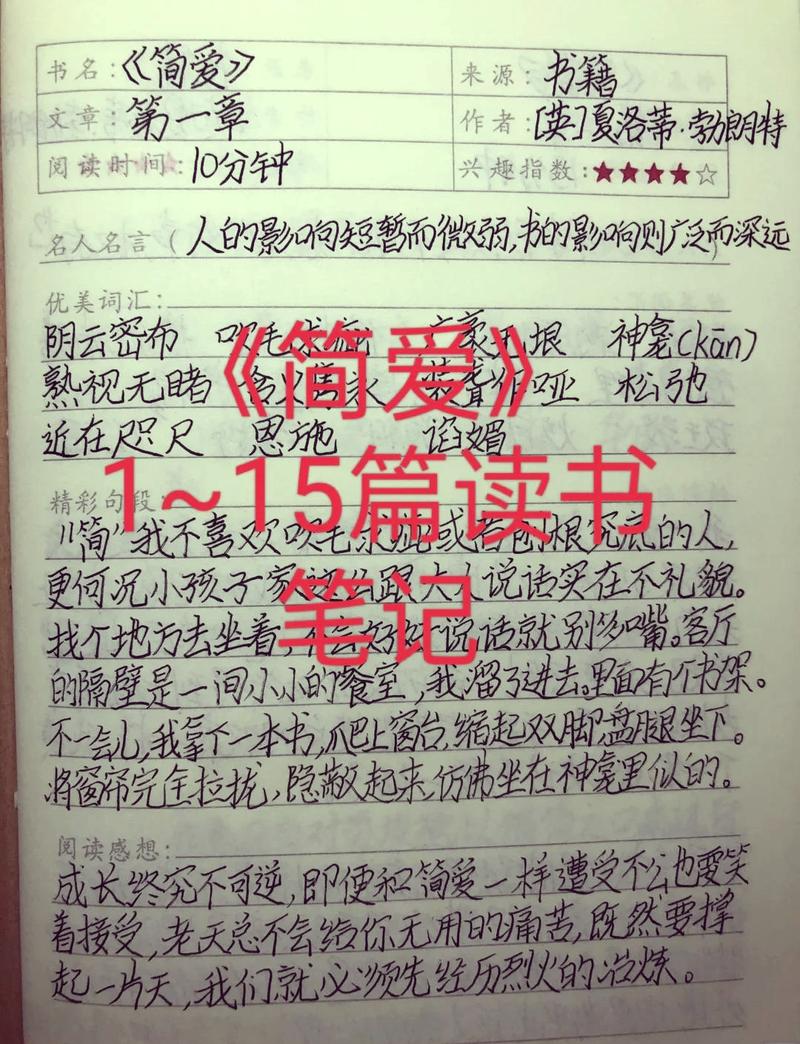 书名：《简爱》 来源：书籍
文章：第一章 作者：[英]夏洛蒂·勃朗特
阅读时间：10分钟 兴趣指数：★★★★☆
名人名言（人的影响短暂而微弱,书的影响则广泛而深远
优美词汇：
阴云密布 吹毛求疵 广袤无垠 神龛(kān)
熟视无睹 装聋作哑 松弛
近在咫尺 恩施 谄媚
《简爱》
1~15篇读书
笔记
精彩句段：
"简"我不喜欢吹毛求疵或者刨根究底的人,
更何况小孩子家这么跟大人说话实在不礼貌。
找个地方去坐着,不会好好说话就别多嘴。客厅
的隔壁是一间小小的餐室,我溜了进去。里面有个书架。
不一会儿,我拿下一本书,爬上窗台,缩起双脚,盘腿坐下。
将窗帘完全拉拢,隐蔽起来,仿佛坐在神龛里似的。
阅读感想：
成长终究不可逆,即便和简爱一样遭受不公也要笑
着接受,老天总不会给你无用的痛苦,既然要撑
起一片天,我们就必须先经历烈火的冶炼。